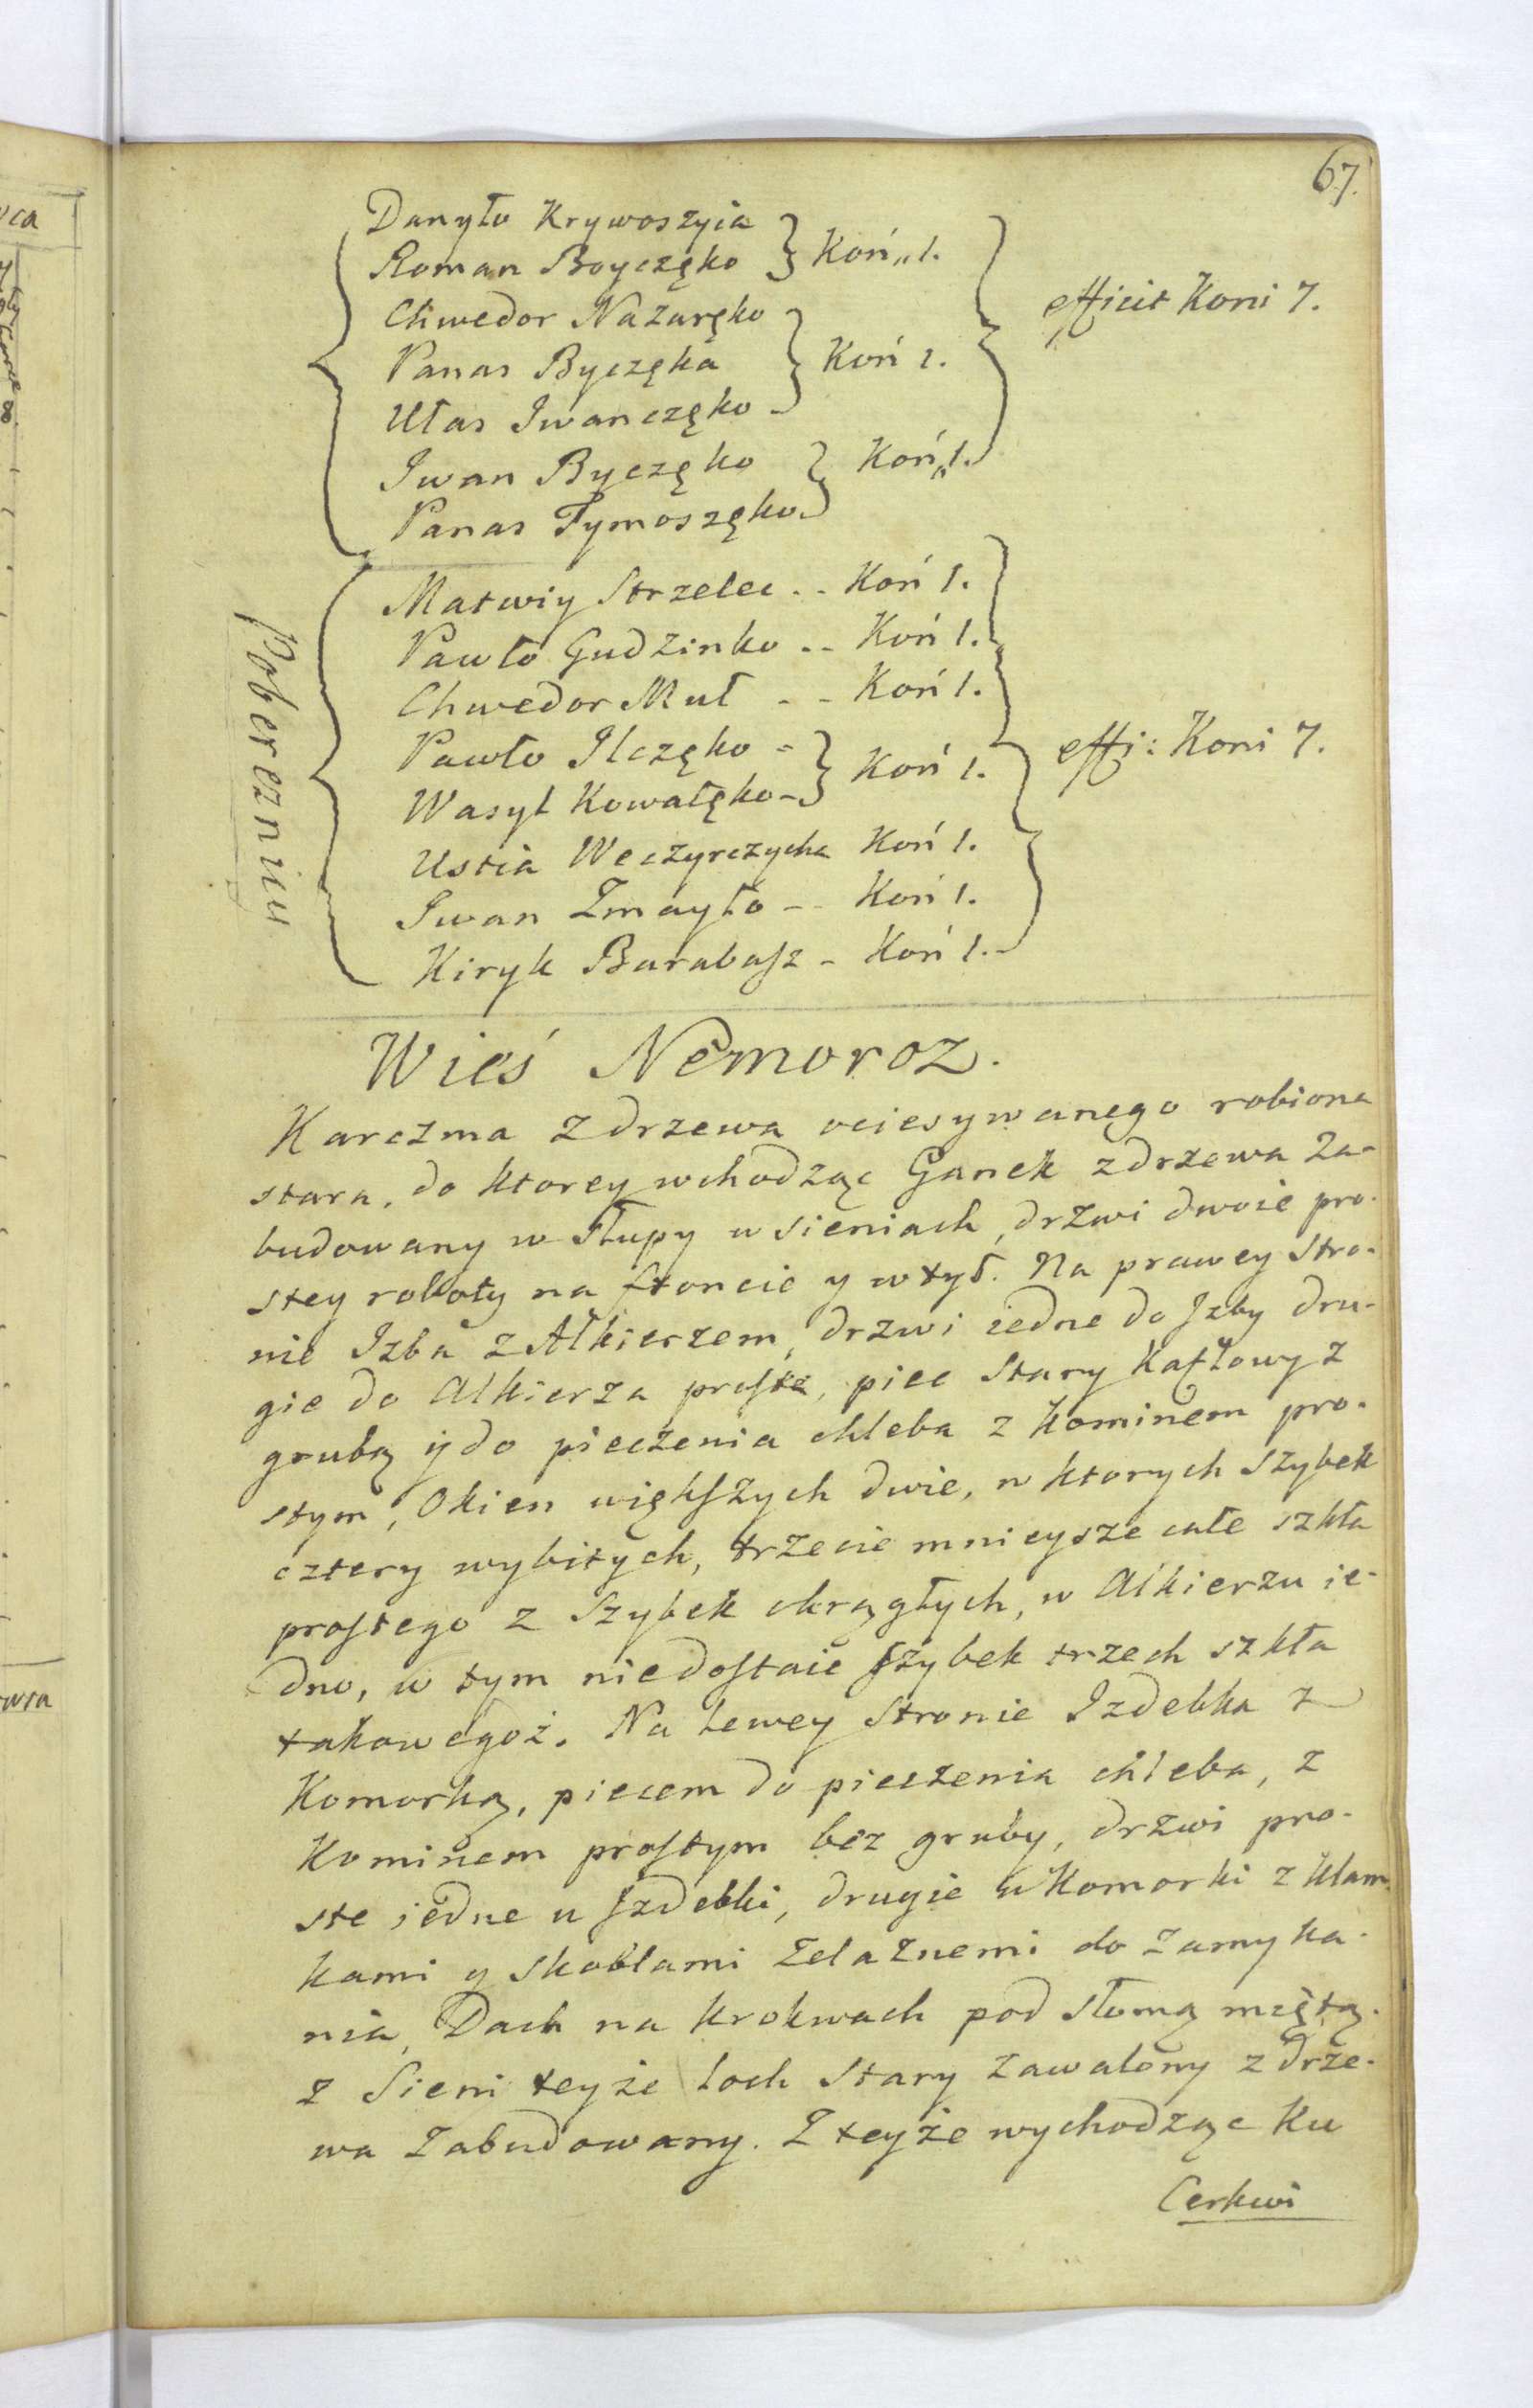 67.
Danyło Krywoszyia
Roman Boyczęko } Koń„ 1.
Chwedor Nazaręko
Panas Byczęka } Koń 1. efficit Koni 7.
Ułas Iwanczęko
Iwan Byczęko } Koń„ 1.
Panas Tymoszęko
Pobereznicy
Matwiy Strzelec .. Koń 1.
Pawło Gudzinko .. Koń 1.
Chwedor Muł - - Koń 1.
Pawło Ilczęko -
Wasyl Kowałęko - } Koń 1. effi: Koni 7.
Ustia Weczyrczycha Koń 1.
Iwan Zmayło -- Koń 1.
Kiryk Barabasz - Koń 1.
Wieś Nemoroz.
Karczma z drzewa ociesywanego robiona
stara, do ktorey wchodząc Ganek z drzewa za-
budowany w słupy w sieniach, drzwi dwoie pro-
stey roboty na froncie y w tył. Na prawey stro-
nie Izba z Alkierzem, drzwi iedne do Izby dru-
gie do Alkierza proste, piec stary kaflowy z
grubą y do pieczenia chleba z kominem pro-
stym, Okien większych dwie, w ktorych szybek
cztery wybitych, trzecie mnieysze całe szkła
prostego z szybek okrągłych, w Alkierzu ie-
dno, w tym niedostaie szybek trzech szkła
takowegoż. Na lewey stronie Izdebka z
Komorką, piecem do pieczenia chleba, z
Kominem prostym bez gruby, drzwi pro-
ste iedne u Izdebki, drugie u Komorki z klam-
kami y skoblami żelaznemi do zamyka-
nia, Dach na krokwach pod słomą miętą.
z Sieni teyże loch stary zawalony z drze-
wa zabudowany. Z teyże wychodząc ku
Cerkwi